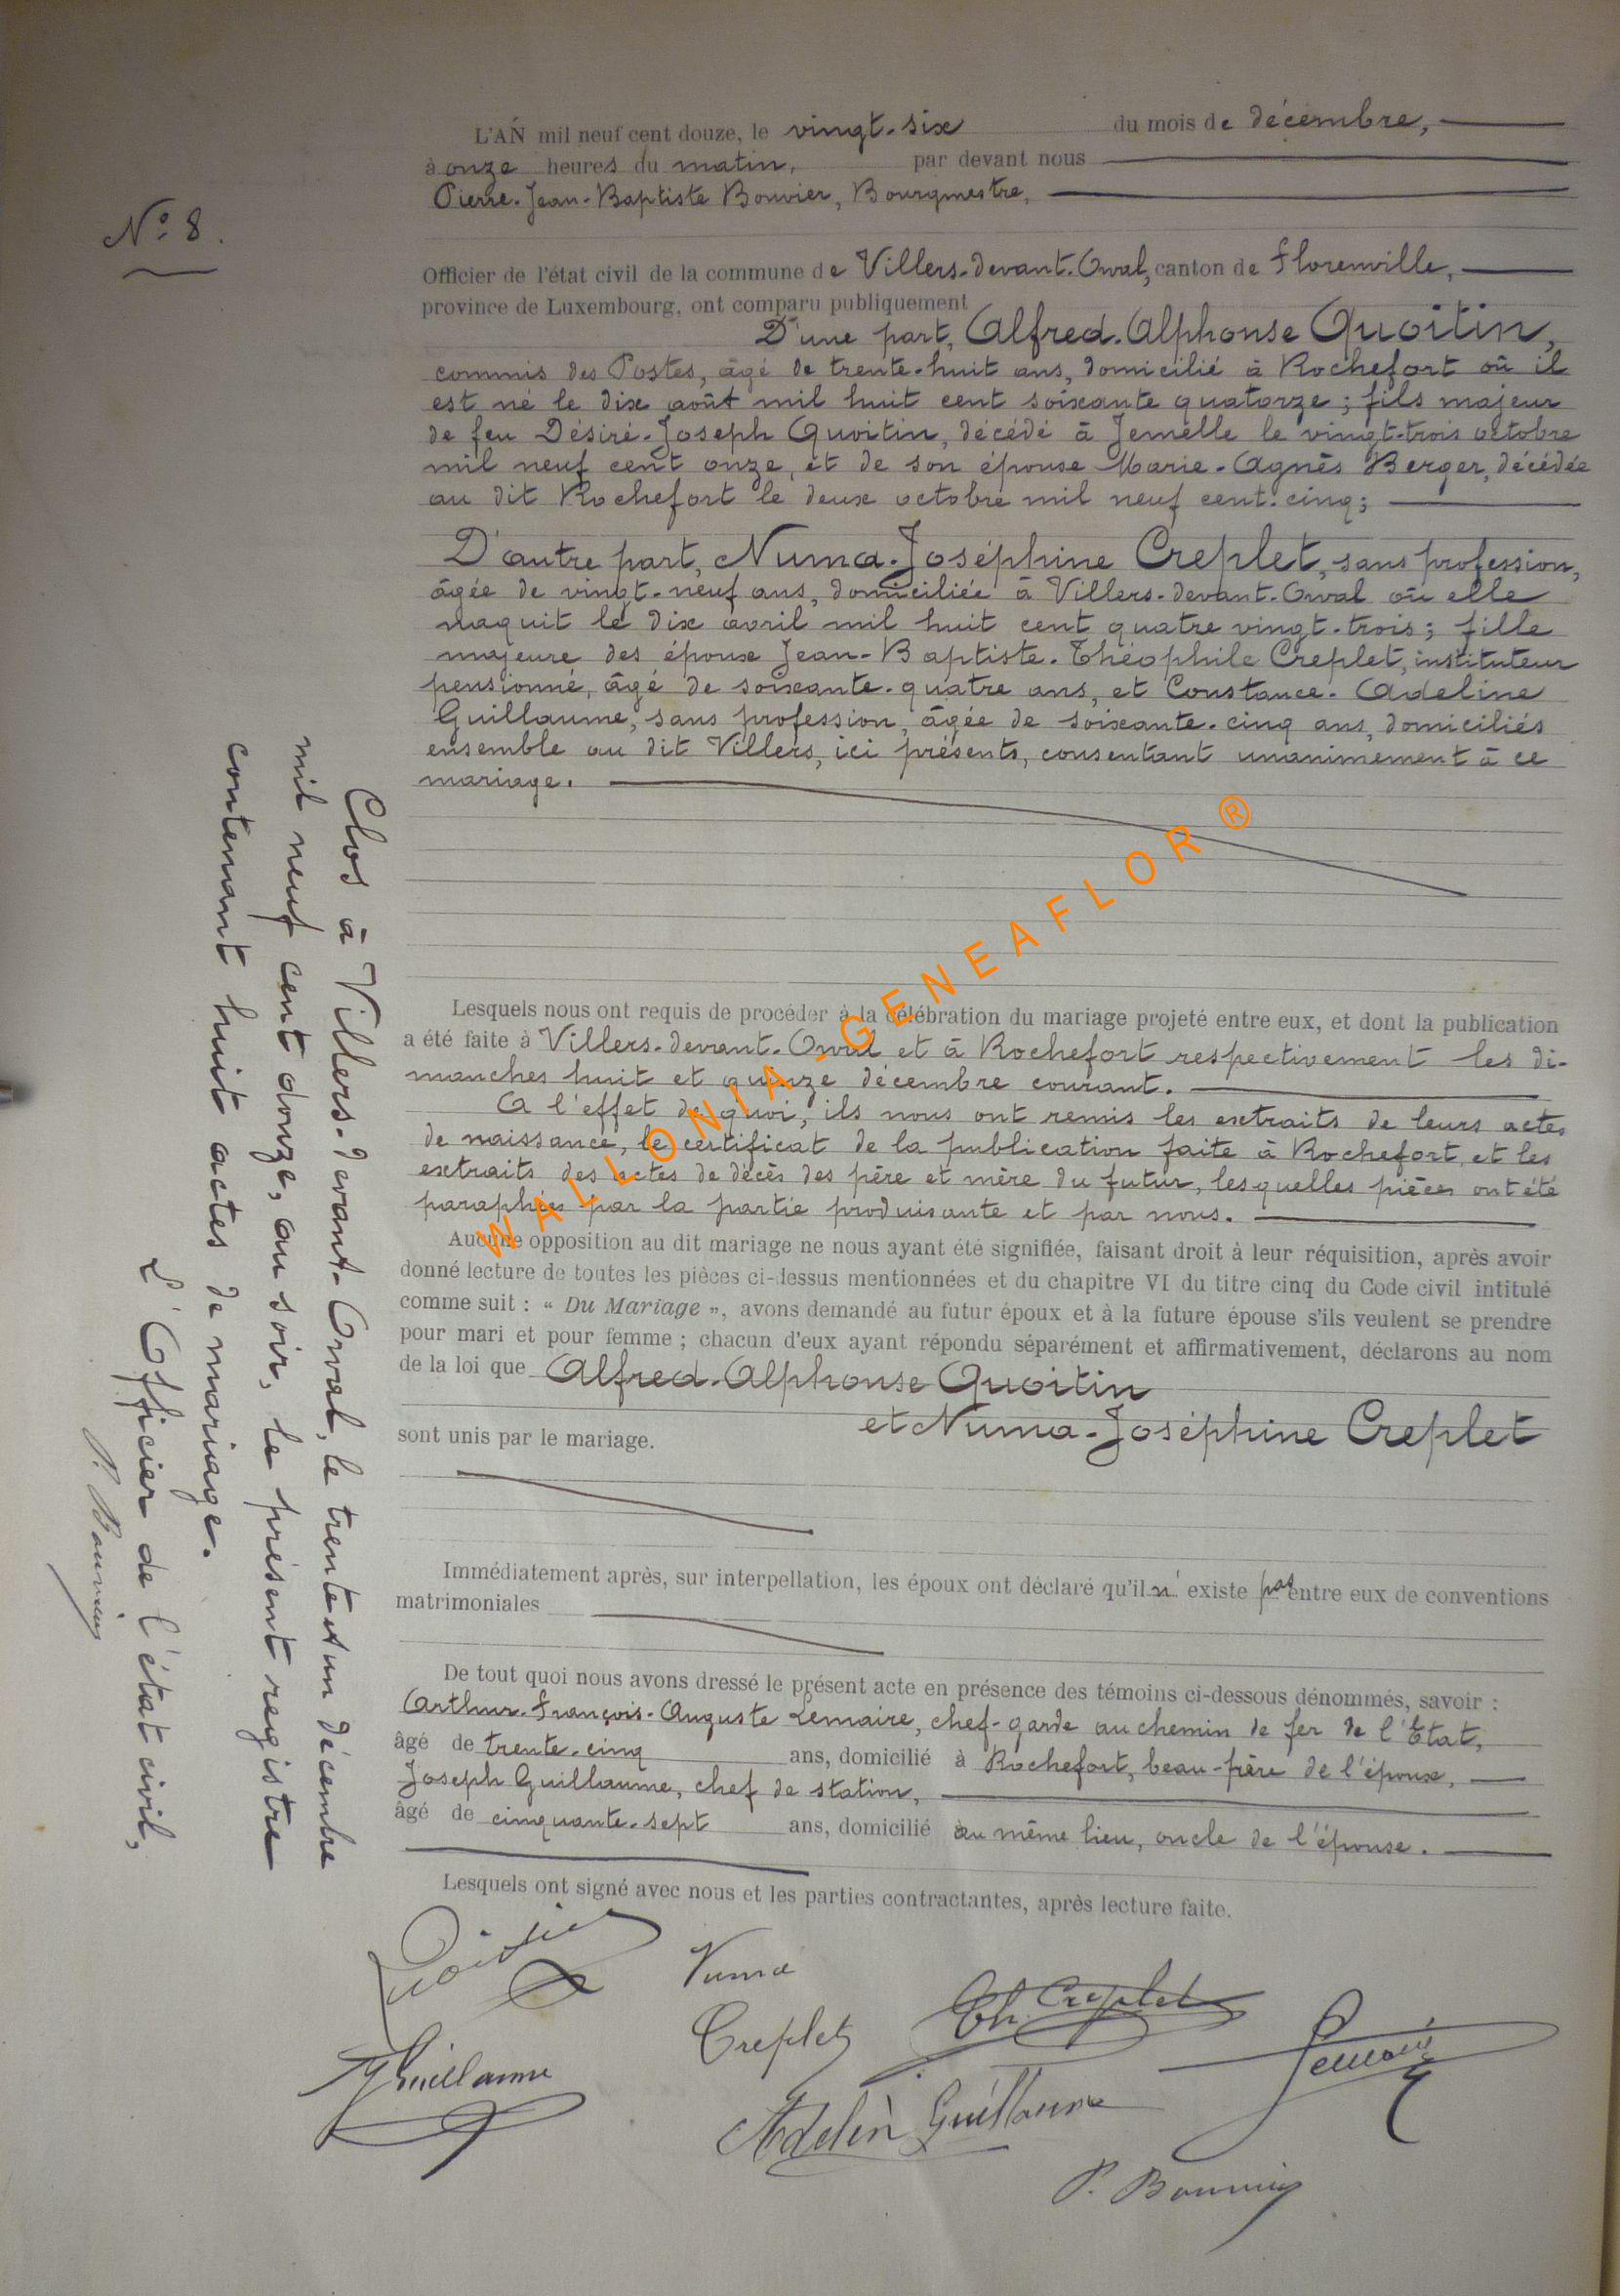 N° 8.
L'AN mil neuf cent douze, le vingt-six du mois de décembre,
à onze heures du matin, par devant nous
Pierre-Jean-Baptiste Bouvier, Bourgmestre,
Officier de l'état civil de la commune de Villers-devant-Orval, canton de Florenville,
province de Luxembourg, ont comparu publiquement
D'une part, Alfred-Alphonse Quoitin,
commis des Postes, âgé de trente-huit ans, domicilié à Rochefort où il
est né le dix août mil huit cent soixante quatorze ; fils majeur
de feu Désiré-Joseph Quoitin, décédé à Jemelle le vingt-trois octobre
mil neuf cent onze, et de son épouse Marie-Agnès Berger, décédée
au dit Rochefort le deux octobre mil neuf cent-cinq ;
D'autre part, Numa-Joséphine Creplet, sans profession,
âgée de vingt-neuf ans, domiciliée à Villers-devant-Orval où elle
naquit le dix avril mil huit cent quatre vingt-trois ; fille
majeure des époux Jean-Baptiste-Théophile Creplet, instituteur
pensionné, âgé de soixante-quatre ans, et Constance-Adeline
Guillaume, sans profession, âgée de soixante-cinq ans, domiciliés
ensemble au dit Villers, ici présents, consentant unanimement à ce
mariage.
Lesquels nous ont requis de procéder à la célébration du mariage projeté entre eux, et dont la publication
a été faite à Villers-devant-Orval et à Rochefort respectivement les di-
manches huit et quinze décembre courant.
A l'effet de quoi, ils nous ont remis les extraits de leurs actes
de naissance, le certificat de la publication faite à Rochefort et les
extraits des actes de décès des père et mère du futur, lesquelles pièces ont été
paraphées par la partie produisante et par nous.
Aucune opposition au dit mariage ne nous ayant été signifiée, faisant droit à leur réquisition, après avoir
donné lecture de toutes les pièces ci-dessus mentionnées et du chapitre VI du titre cinq du Code civil intitulé
comme suit : « Du Mariage », avons demandé au futur époux et à la future épouse s'ils veulent se prendre
pour mari et pour femme ; chacun d'eux ayant répondu séparément et affirmativement, déclarons au nom
de la loi que Alfred-Alphonse Quoitin
et Numa-Joséphine Creplet
sont unis par le mariage.
Immédiatement après, sur interpellation, les époux ont déclaré qu'il n' existe pas entre eux de conventions
matrimoniales
De tout quoi nous avons dressé le présent acte en présence des témoins ci-dessous dénommés, savoir :
Arthur-François-Auguste Lemaire, chef-garde au chemin de fer de l'Etat,
âgé de trente-cinq ans, domicilié à Rochefort, beau-frère de l'époux,
Joseph Guillaume, chef de station,
âgé de cinquante-sept ans, domicilié au même lieu, oncle de l'épouse.
Lesquels ont signé avec nous et les parties contractantes, après lecture faite.
Quoitin
Numa
Creplet
Th. Creplet
Lemaire
J Guillaume
Adelin Guillaume
P. Bouvier
Clos à Villers-devant-Orval, le trente et un décembre
mil neuf cent douze, au soir, le présent registre
contenant huit actes de mariage.
L'Officier de l'état civil,
P. Bouvier
WALLONIA-GENEAFLOR ®